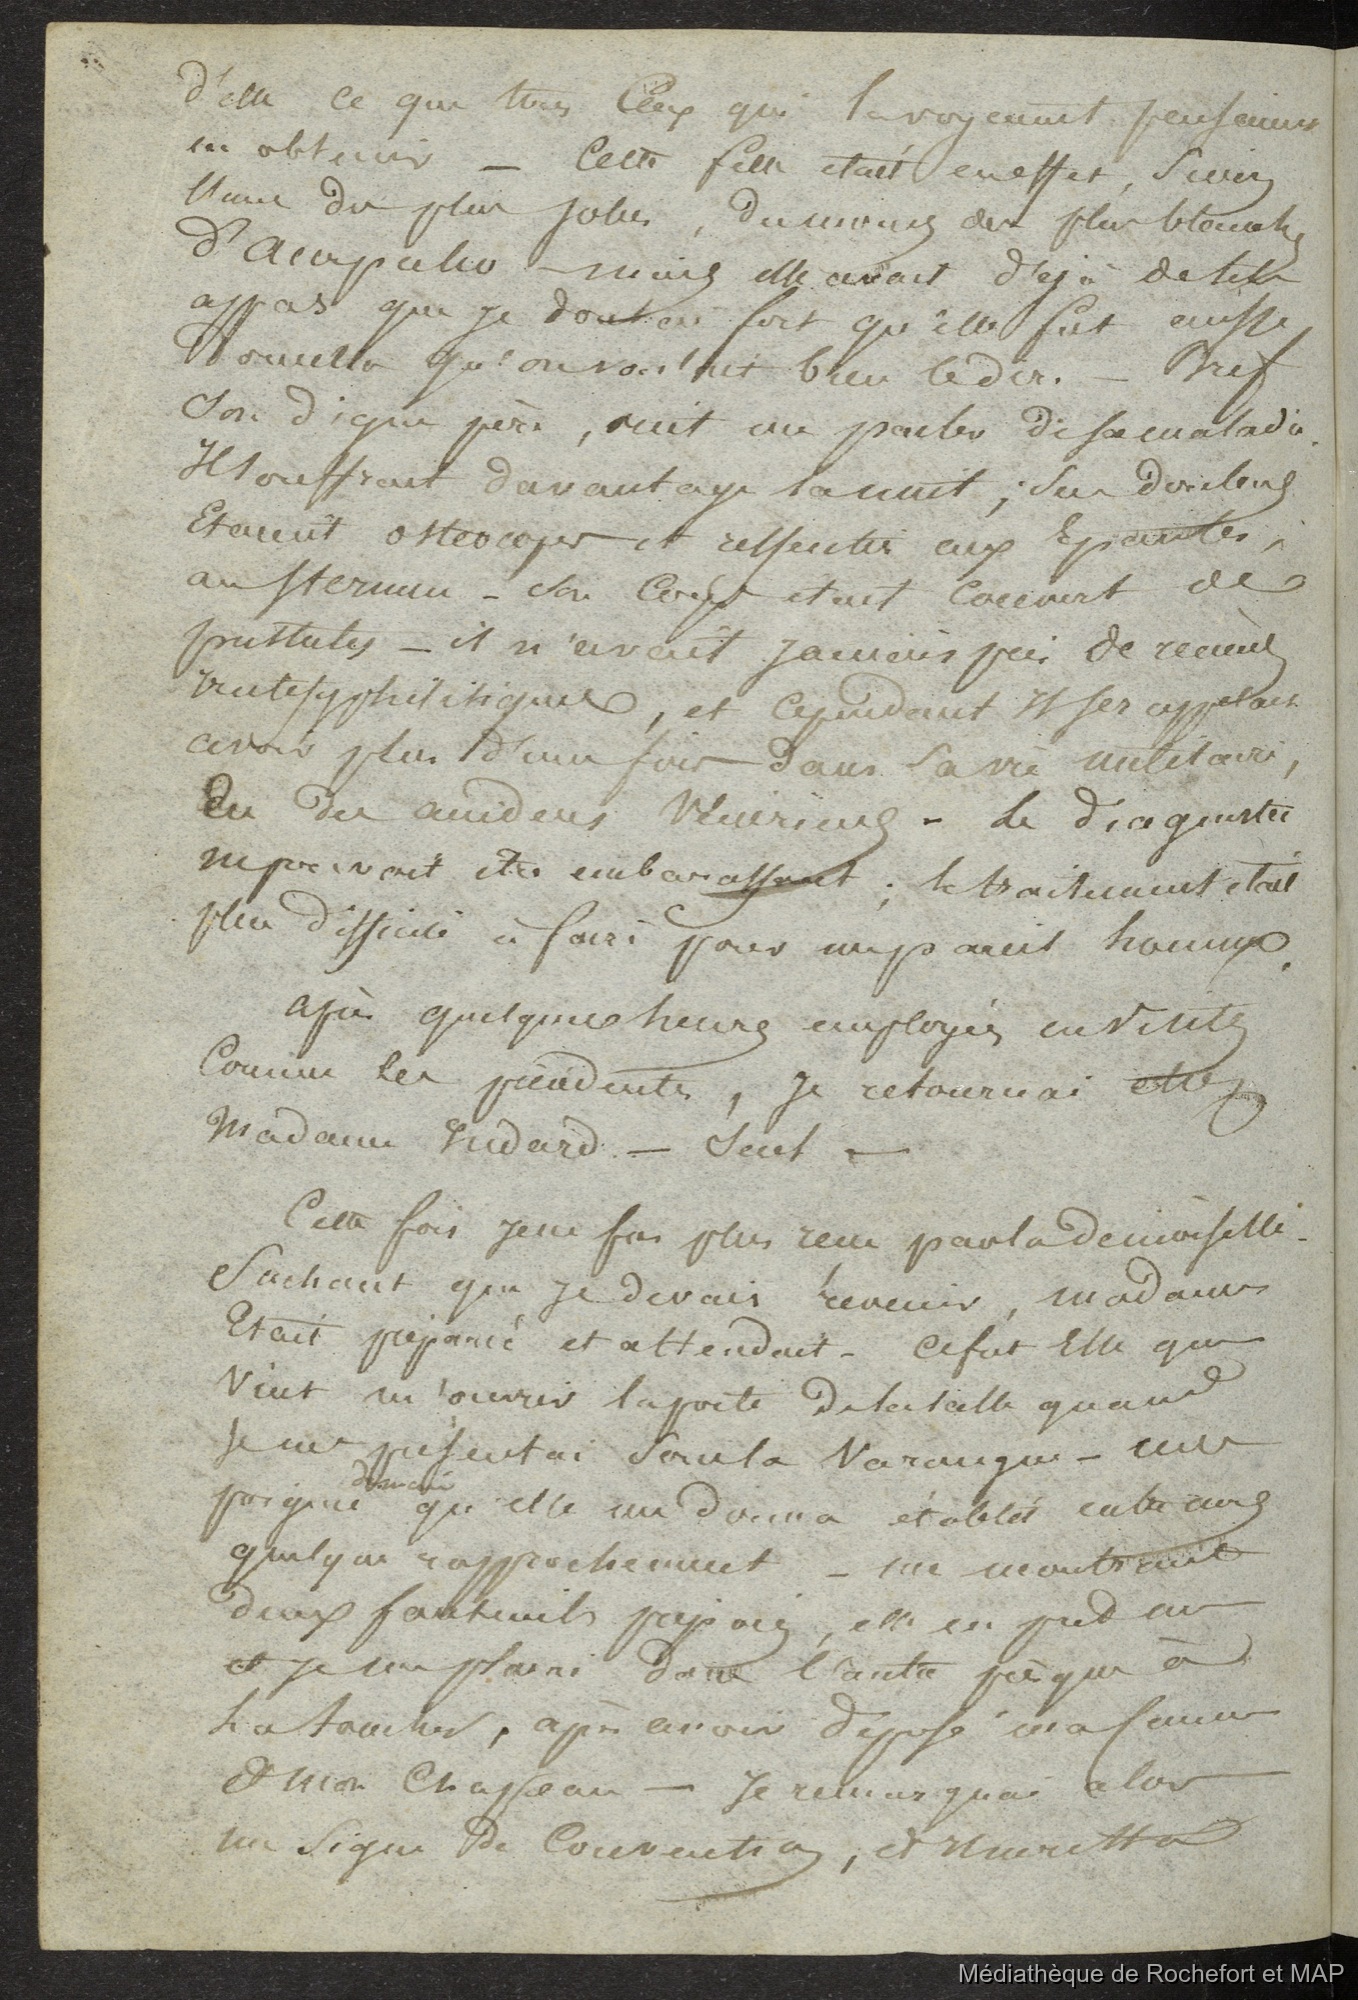 d'elle ce que tous ceux qui la voyaient pensaient
en obtenir — Cette fille etait en effet, sinon
l'une des plus jolies, du moins des plus blanches
d'Acapulco — mais elle avait d'ejà de tels
appas que je doutai fort qu'elle fut aussi
qu'on voulait bien le dire. — Bref
Son digne père, vint me parler de sa maladie.
Il souffrait davantage la nuit ; Ses douleurs
Etaient osteocopes et ressenties aux Epaules,
au sternum — Son Corps etait Couvert de
pustules — il n'avait jamais pris de remèdes
antisyphilitiques, et cependant Il se rappelait
avoir plus d'une fois dans sa vie militaire,
Eu des accidens Vénériens — Le diagnostic
ne pouvait être embarassant ; le traitement était
plus difficile à faire pour un pareil homme.
après quelques heures employées en visites
Comme les précédentes, je retournai chez
Madame — Seul —
Cette fois je ne fus plus recu par la demoiselle —
Sachant que je devais revenir, madame
Etait préparée et attendait — ce fut Elle qui
Vint m'ouvrir la porte de la salle quand
Je me présentai sous la Varangue — une
poignée de main qu'elle me donna établit entre nous
quelque rapprochement — me montrant
deux fauteuils préparés, elle en prit un
et je me plaçai dans l'autre presque à
la toucher, après avoir déposé ma canne
et mon Chapeau — Je remarquai alors
un signe de Convention, et